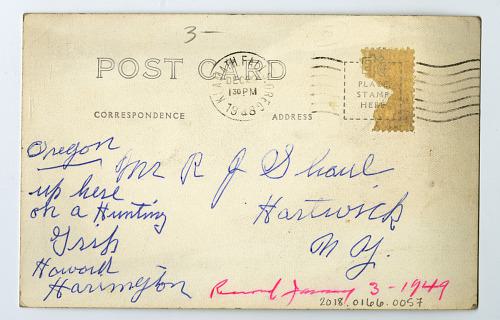 3-
POST CARD
KLAMATH FALLS, OREG.
DEC
1 30 PM
PLACE
STAMP
HERE
CORRESPONDENCE
ADDRESS
Oregon
up here
on a Hunting
Trip
Howard
Harrington
Mr R J Shaul
Hartwick
N Y.
3-1949
2018.0166.0057